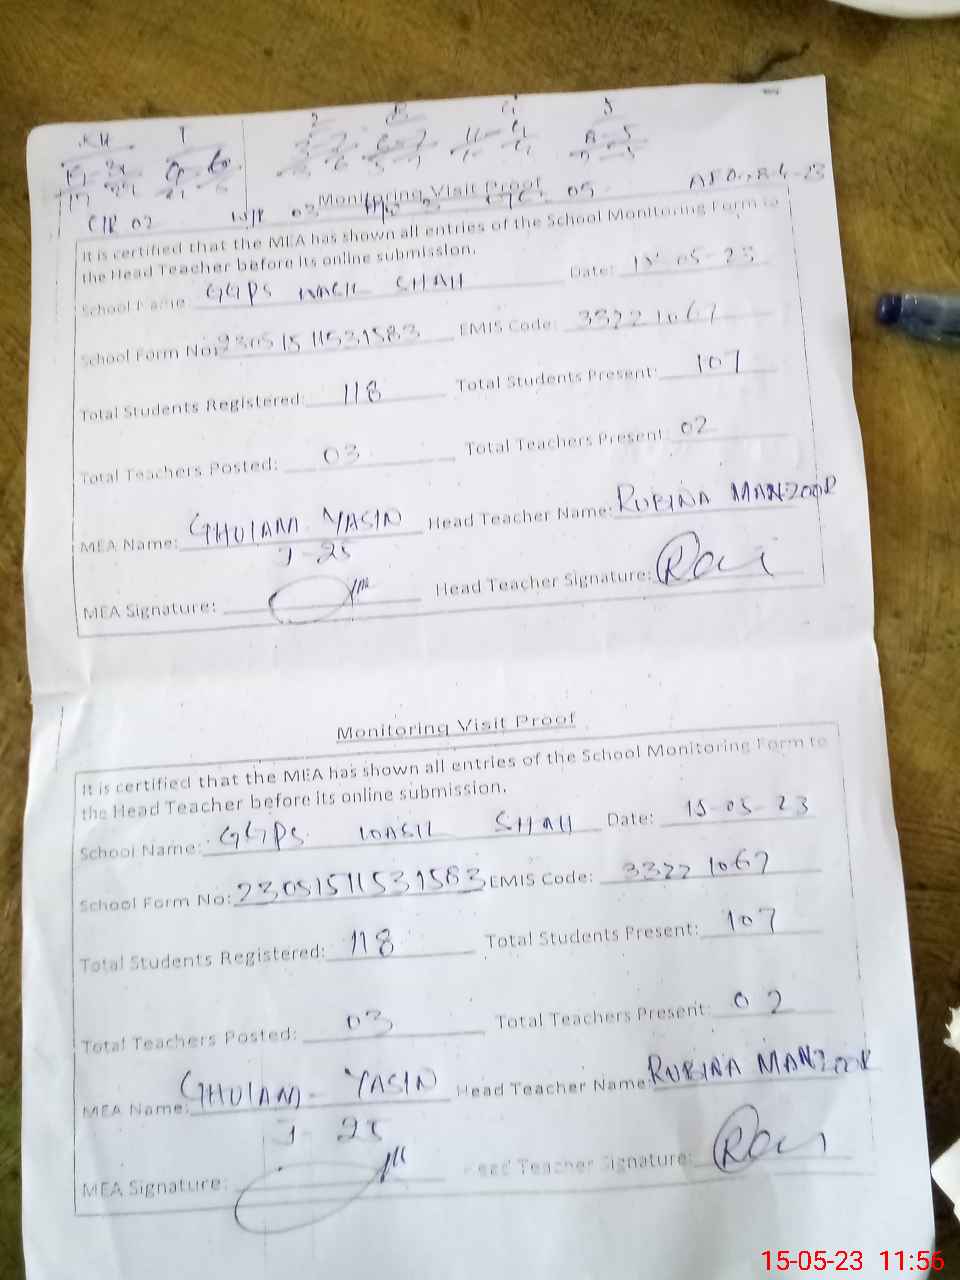 KH 1 2 4 5
Monitoring Visit Proof
C/R 02 W/R 03 05
It is certified that the MEA has shown all entries of the School Monitoring Form to
the Head Teacher before its online submission.
School Name GGPS WASIL SHAH Date: 15-05-23
School Form No: 23051511531583 EMIS Code: 33221067
Total Students Registered: 118 Total Students Present: 107
Total Teachers Posted: 03 Total Teachers Present: 02
MEA Name: GHULAM YASIN Head Teacher Name: RUBINA MANZOOR
J-25
MEA Signature: Head Teacher Signature:
Monitoring Visit Proof
It is certified that the MEA has shown all entries of the School Monitoring Form to
the Head Teacher before its online submission.
School Name: GGPS WASIL SHAH Date: 15-05-23
School Form No: 23051511531583 EMIS Code: 33221067
Total Students Registered: 118 Total Students Present: 107
Total Teachers Posted: 03 Total Teachers Present: 02
MEA Name: GHULAM - YASIN Head Teacher Name: RUBINA MANZOOR
J-25
MEA Signature: Head Teacher Signature:
15-05-23 11:56